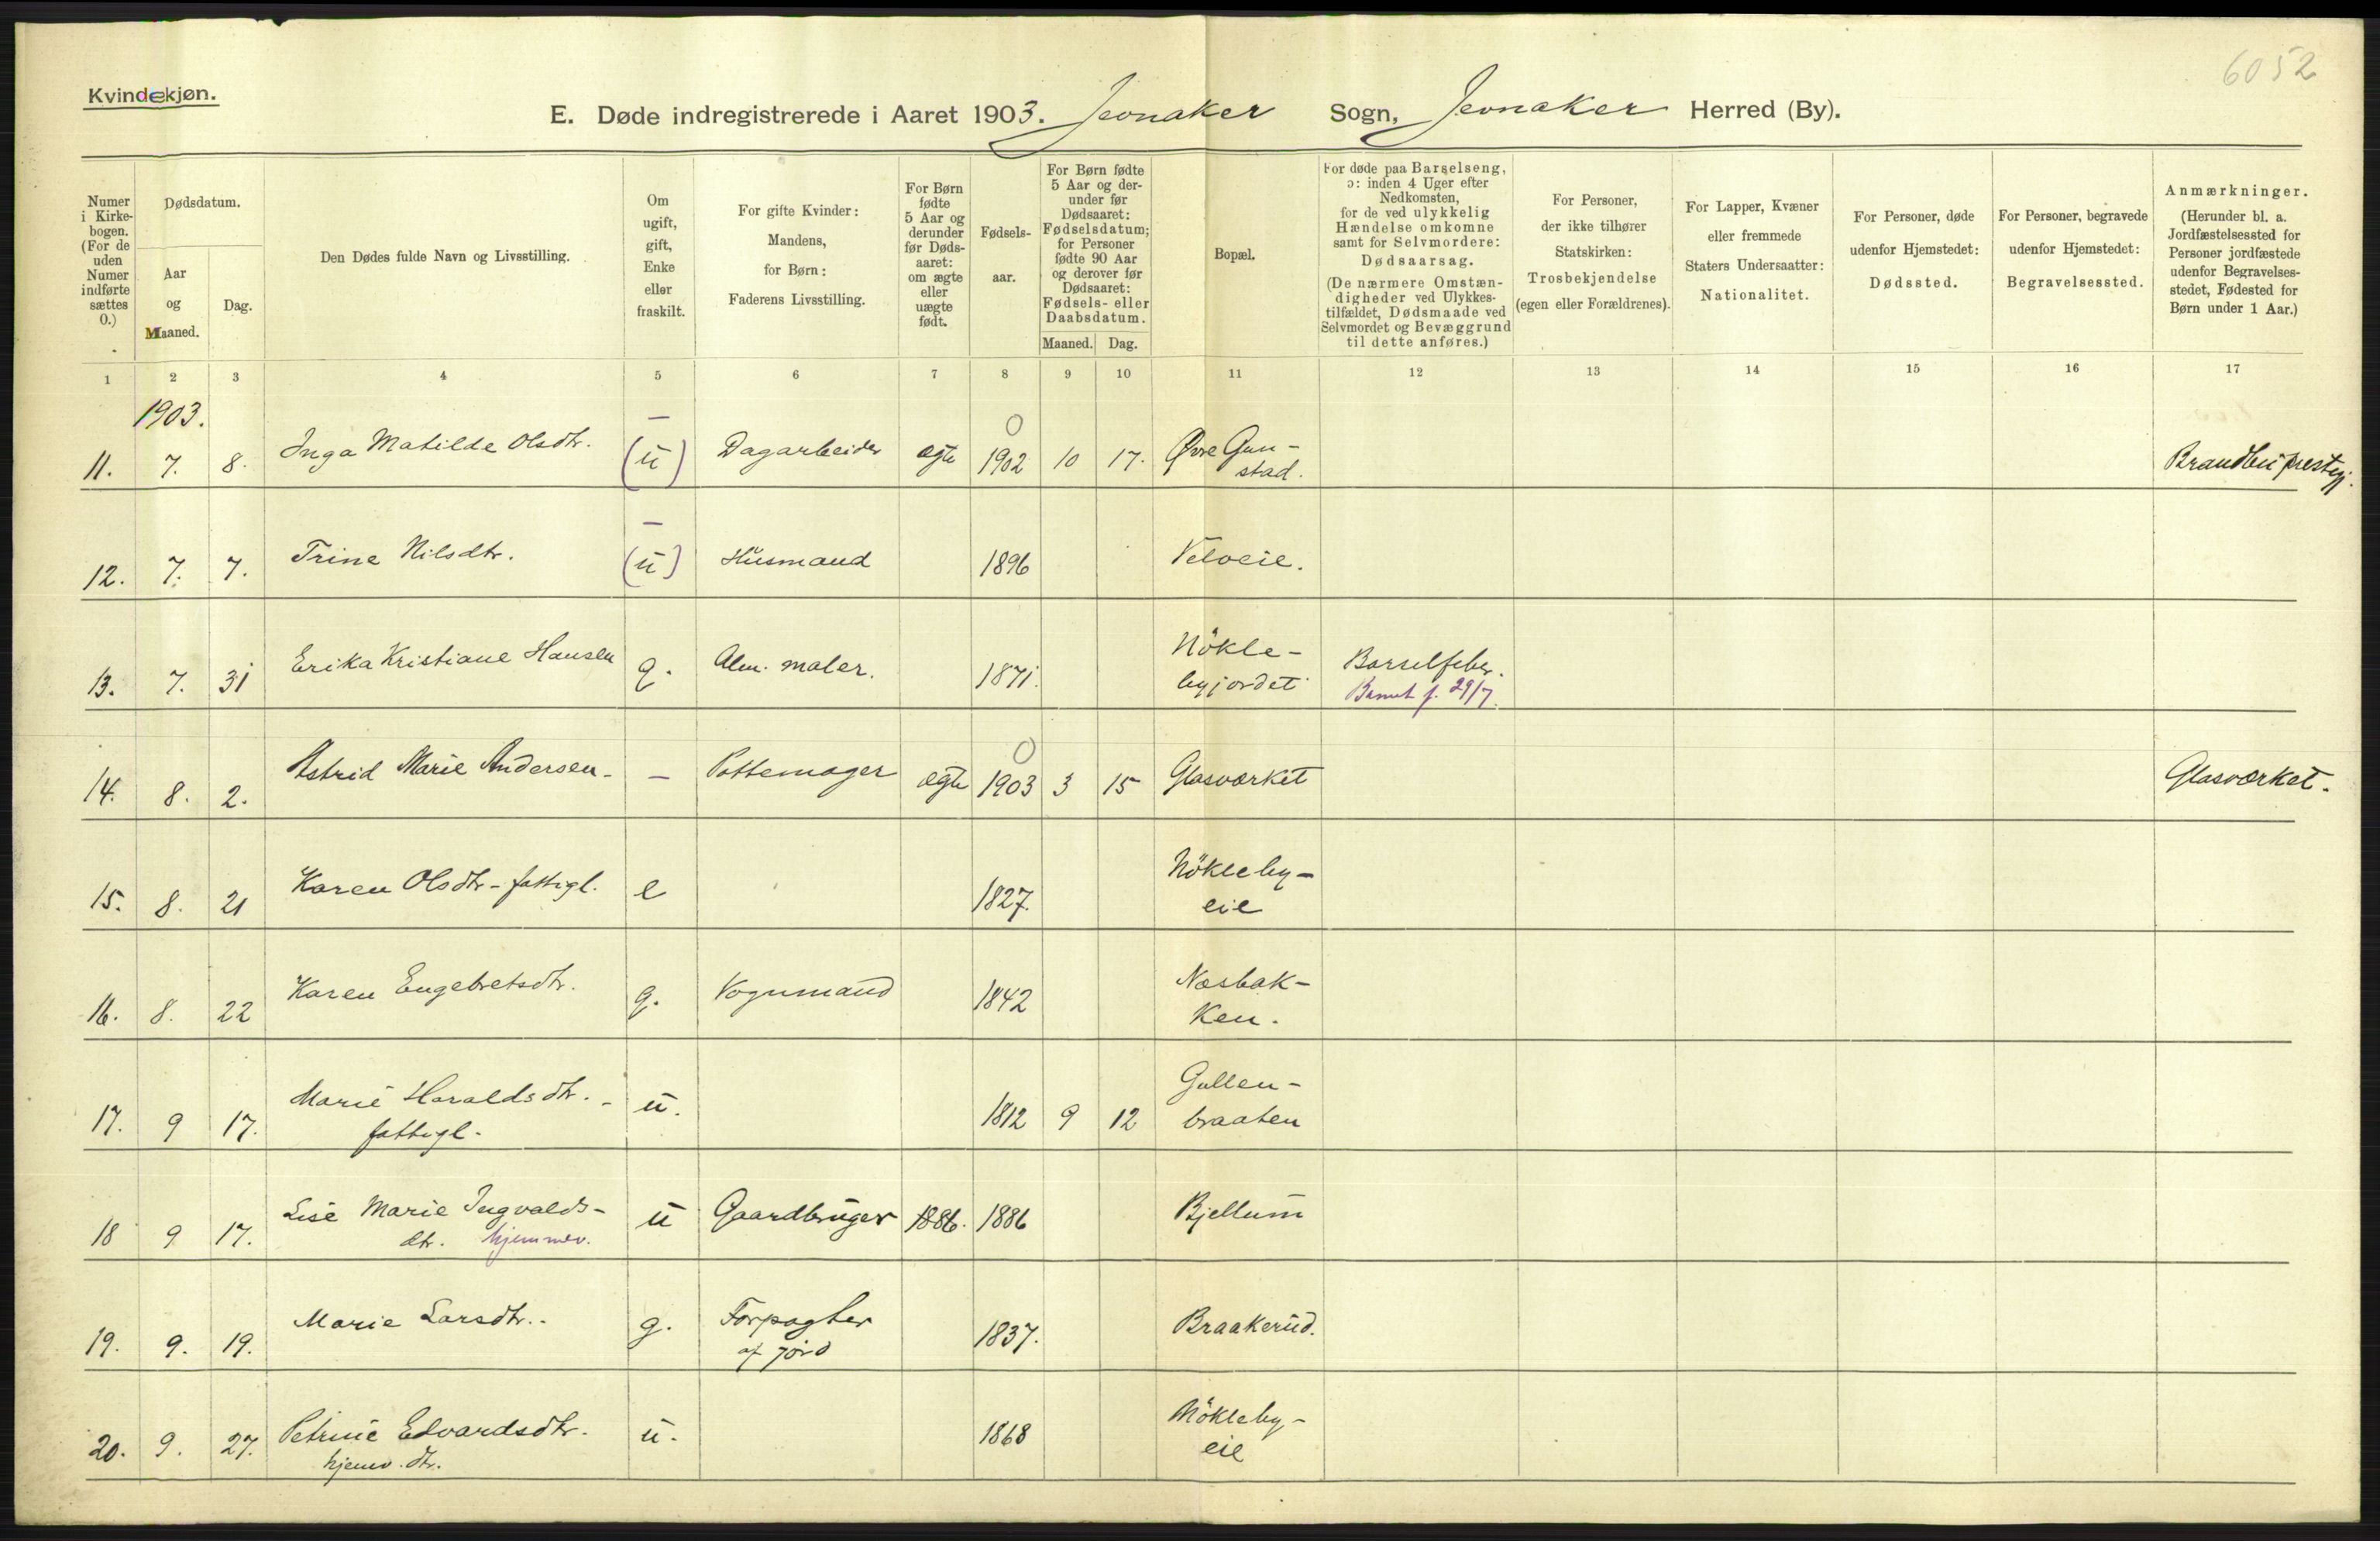 6052
Kvindekjøn.
E. Døde indregistrerede i Aaret 1903. Jevnaker Sogn, Jevnaker Herred (By).
Numer i Kirkebogen. (For de uden Numer indførte sættes 0.)
Dødsdatum.
Aar og Maaned.
Dag.
Den Dødes fulde Navn og Livsstilling.
Om ugift, gift, Enke eller fraskilt.
For gifte Kvinder: Mandens, for Børn: Faderens Livsstilling.
For Børn fødte 5 Aar og derunder før Dødsaaret: om ægte eller uægte født.
Fødselsaar.
For Børn fødte 5 Aar og derunder før Dødsaaret: Fødselsdatum; for Personer fødte 90 Aar og derover før Dødsaaret: Fødsels- eller Daabsdatum.
Maaned. Dag.
Bopæl.
For døde paa Barselseng, ɔ: inden 4 Uger efter Nedkomsten, for de ved ulykkelig Hændelse omkomne samt for Selvmordere: Dødsaarsag.
(De nærmere Omstændigheder ved Ulykkestilfældet, Dødsmaade ved Selvmordet og Bevæggrund til dette anføres.)
For Personer, der ikke tilhører Statskirken: Trosbekjendelse (egen eller Forældrenes).
For Lapper, Kvæner eller fremmede Staters Undersaatter: Nationalitet.
For Personer, døde udenfor Hjemstedet: Dødssted.
For Personer, begravede udenfor Hjemstedet: Begravelsessted.
Anmærkninger.
(Herunder bl. a. Jordfæstelsessted for Personer jordfæstede udenfor Begravelsesstedet, Fødested for Børn under 1 Aar.)
1 2 3 4 5 6 7 8 9 10 11 12 13 14 15 16 17
1903.
11. 7. 8. Inga Matilde Olsdtr. — (u) Dagarbeider ægte 0 1902 10 17. Øvre Gunstad. Brandbu prestgj.
12. 7. 7. Trine Nilsdtr. — (u) Husmand 1896 Velveie.
13. 7. 31 Erika Kristiane Hansen g. Alm. maler. 1871. Nökle-
byjordet Barselfeber.
Barnet f. 29/7.
14. 8. 2. Astrid Marie Andersen - — Pottemager ægte 0 1903 3 15 Glasværket Glasværket.
15. 8. 21 Karen Olsdtr - fattigl. e 1827. Nökleby-
eie
16. 8. 22 Karen Engebretsdtr. g. Vognmand 1842 Næsbak-
ken.
17. 9 17. Marie Haraldsdtr. - u. 1812 9 12 Gullen-
fattigl. braaten
18 9 17. Lise Marie Ingvalds- u Gaardbruger 1886. 1886 Bjellum
dtr. hjemmev.
19. 9. 19. Marie Larsdtr. g. Forpagter 1837. Braakerud.
af jord
20. 9. 27. Petrine Edvardsdtr. u. 1868 Nökleby-
hjemv. dtr. eie